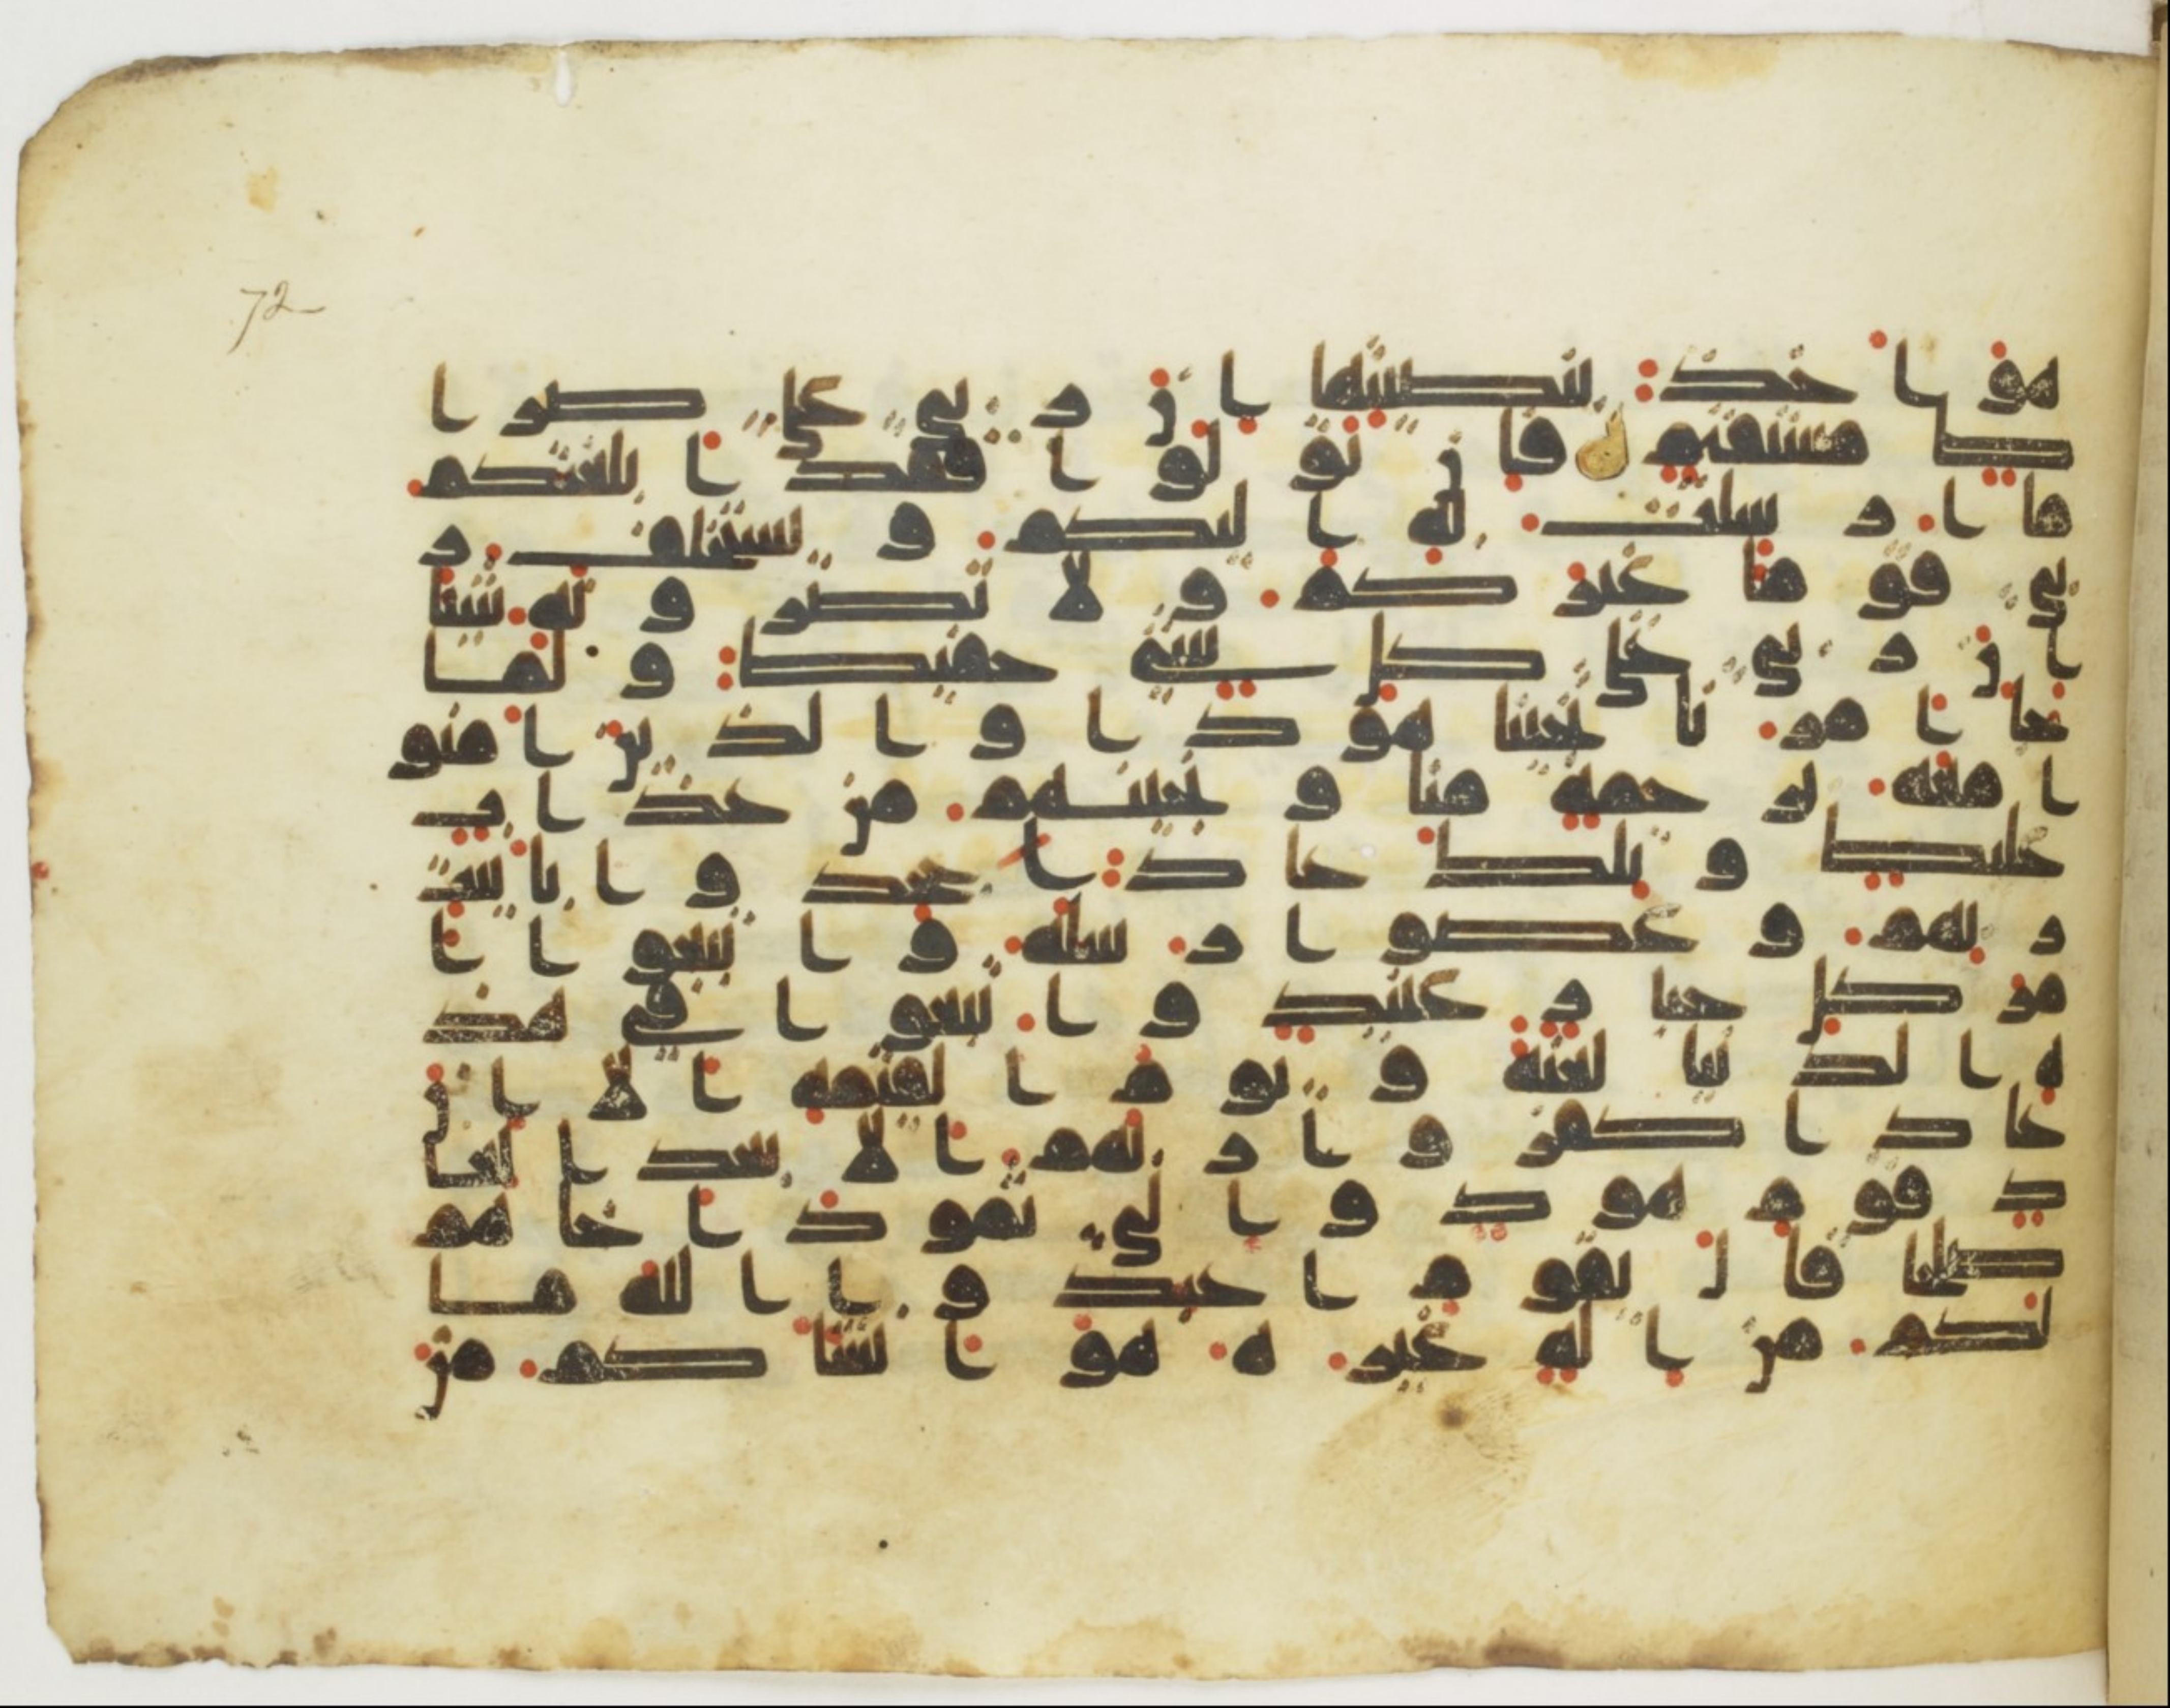 72
هو اخذ بنصيتها ان ربي على صرا
ط مستقيم فان تولوا فقد ابلغتكم
ما ارسلت به اليكم ويستخلف ر
بي قوما غيركم ولا تضرونه شيا
ان ربي على كل شي حفيظ ولما
جا امرنا نجينا هودا والذين امنو
ا معه برحمة منا ونجينهم من عذاب
غليظ وتلك عاد جحدوا بايت
ربهم وعصوا رسله واتبعوا ا
مر كل جبار عنيد واتبعوا في هذ
ه الدنيا لعنة ويوم القيمة الا ان
عادا كفروا ربهم الا بعدا لعا
د قوم هود والى ثمود اخاهم
صلحا قال يقوم اعبدوا الله ما
لكم من اله غيره هو انشاكم من